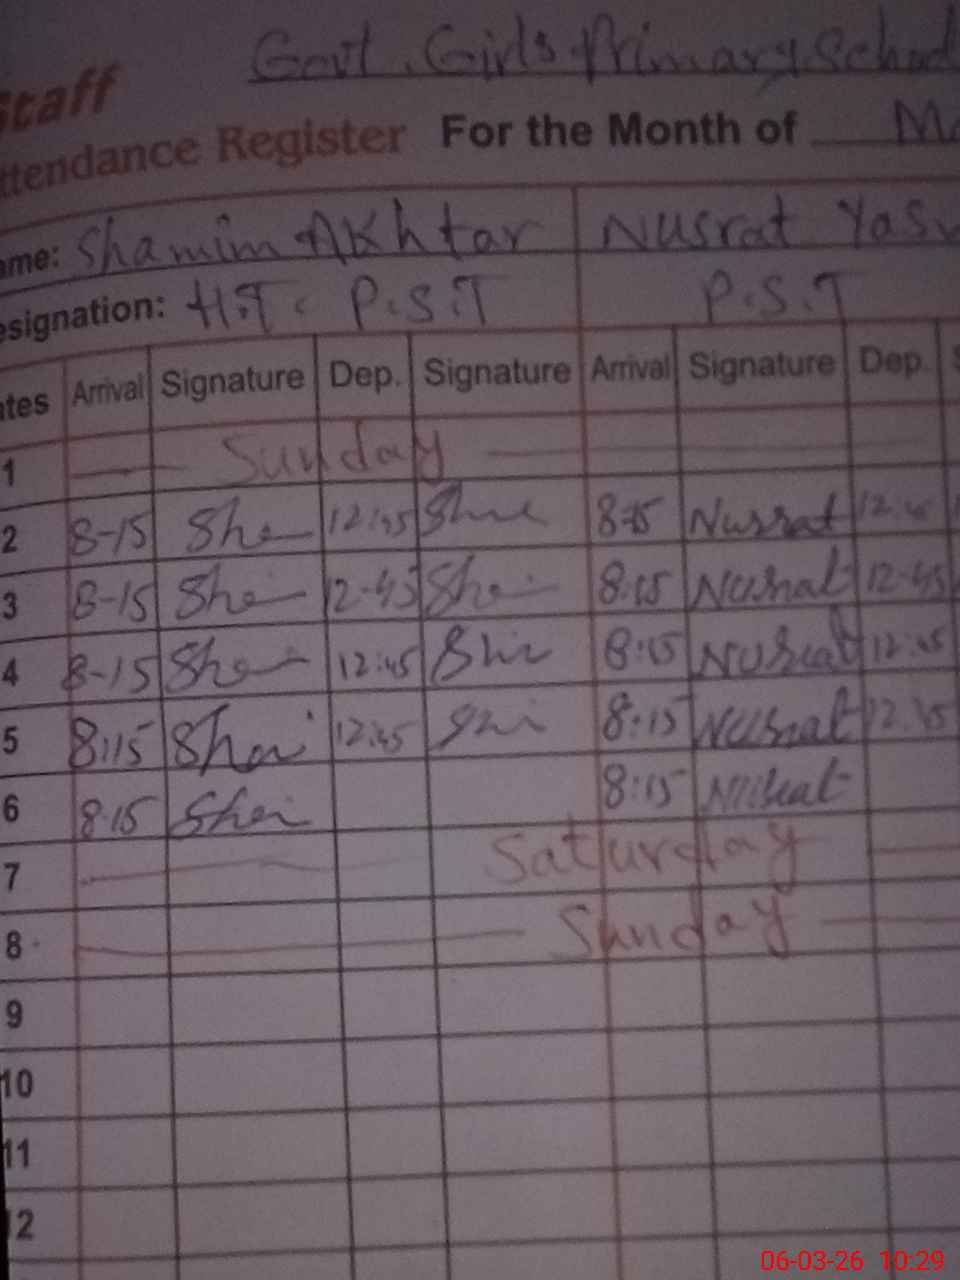 Govt. Girls Primary School
Staff
Attendance Register For the Month of
Name: Shamim Akhtar Nusrat
Designation: H.T. P.S.T P.S.T
Dates Arrival Signature Dep. Signature Arrival Signature Dep.
1 Sunday
2 8-15 She 12:45 8:15 Nusrat 12:45
3 8-15 She 12-45 She 8:15 Nusrat 12-45
4 8-15 She 12:45 Shi 8:15 Nusrat 12:45
5 8:15 Shai 12:45 8:15 Nusrat 12.45
6 8:15 Shai 8:15 Nusrat
7 Saturday
8 Sunday
9
10
11
12
06-03-26 10:29